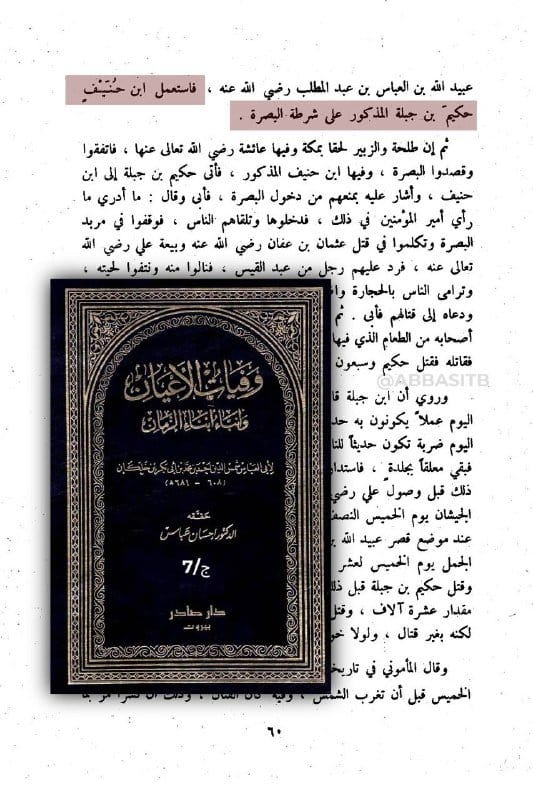 عبيد الله بن العباس بن عبد المطلب رضي الله عنه ، فاستعمل ابن حُنَيْفٍ
حكيمَ بن جبلة المذكور على شرطة البصرة .
ثم إن طلحة والزبير لحقا بمكة وفيها عائشة رضي الله تعالى عنها ، فاتفقوا
وقصدوا البصرة ، وفيها ابن حنيف المذكور ، فأتى حكيم بن جبلة إلى ابن
حنيف ، وأشار عليه بمنعهم من دخول البصرة ، فأبى وقال : ما أدري ما
رأي أمير المؤمنين في ذلك ، فدخلوها وتلقاهم الناس ، فوقفوا في مربد
البصرة وتكلموا في قتل عثمان بن عفان رضي الله عنه وبيعة علي رضي الله
تعالى عنه ، فرد عليهم رجل من عبد القيس ، فنالوا منه ونتفوا لحيته ،
وترامى الناس بالحجارة
ودعاه إلى قتالهم فأبى . ثم
أصحابه من الطعام الذي فيها
فقاتله فقتل حكيم وسبعون
وروي أن ابن جبلة
اليوم عملاً يكونون به
اليوم ضربة تكون حديثاً
فبقي معلقاً بجلدة ،
ذلك قبل وصول علي
الجيشان يوم الخميس
عند موضع قصر عبيد الله
الجمل يوم الخميس لعشر
وقتل حكيم بن جبلة قبل
مقدار عشرة آلاف ،
لكنه بغير قتال ، ولولا
وقال المأموني في
الخميس قبل أن تغرب الشمس ، وفيه كان القتال ،
٦٠
وفيات الأعيان
وأنباء أبناء الزمان
لأبي العباس شمس الدين أحمد بن محمد بن أبي بكر بن خلكان
(٦٠٨ - ٦٨١هـ)
حققه
الدكتور إحسان عباس
ج/7
دار صادر
بيروت
@ABBASITB